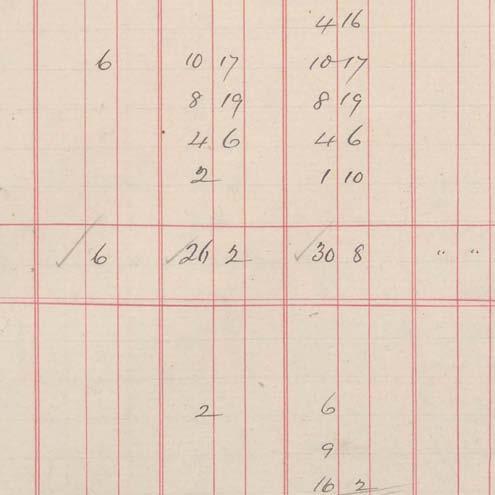 4 16
6 10 17 10 17
8 19 8 19
4 6 4 6
2 1 10
✓ 6 ✓ 26 2 ✓ 30 8 " "
2 6
9
16 2